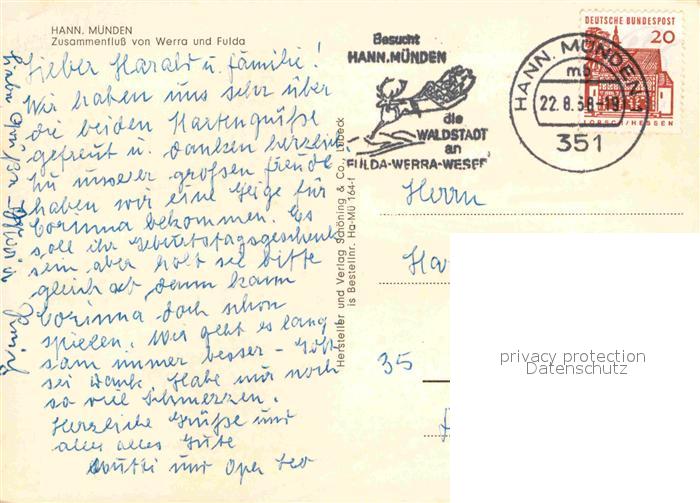 HANN. MÜNDEN
Zusammenfluß von Werra und Fulda
Lieber Harald u. Familie!
Wir haben uns sehr über
die beiden Kartengrüße
gefreut u. danken herzlich
zu unserer großen Freude
haben wir eine Geige für
Corinna bekommen. Es
soll ihr Geburtstagsgeschenk
sein aber holt sie bitte
gleich ab denn kann
Corinna doch schon
spielen. Mir geht es lang
sam immer besser – Gott
sei Dank. Habe nur noch
so viel Schmerzen.
Herzliche Grüße und
alles alles Gute
Mutti und Opa Leo
Hersteller und Verlag Schöning & Co., Lübeck
is Bestellnr. Ha-Mü 164-f
Besucht
HANN.MÜNDEN
die
WALDSTADT
an
FULDA-WERRA-WESER
HANN. MÜNDEN
mb
22.8.68-19
351
DEUTSCHE BUNDESPOST
20
LORSCH/HESSEN
Herrn
Ha
35
privacy protection
Datenschutz